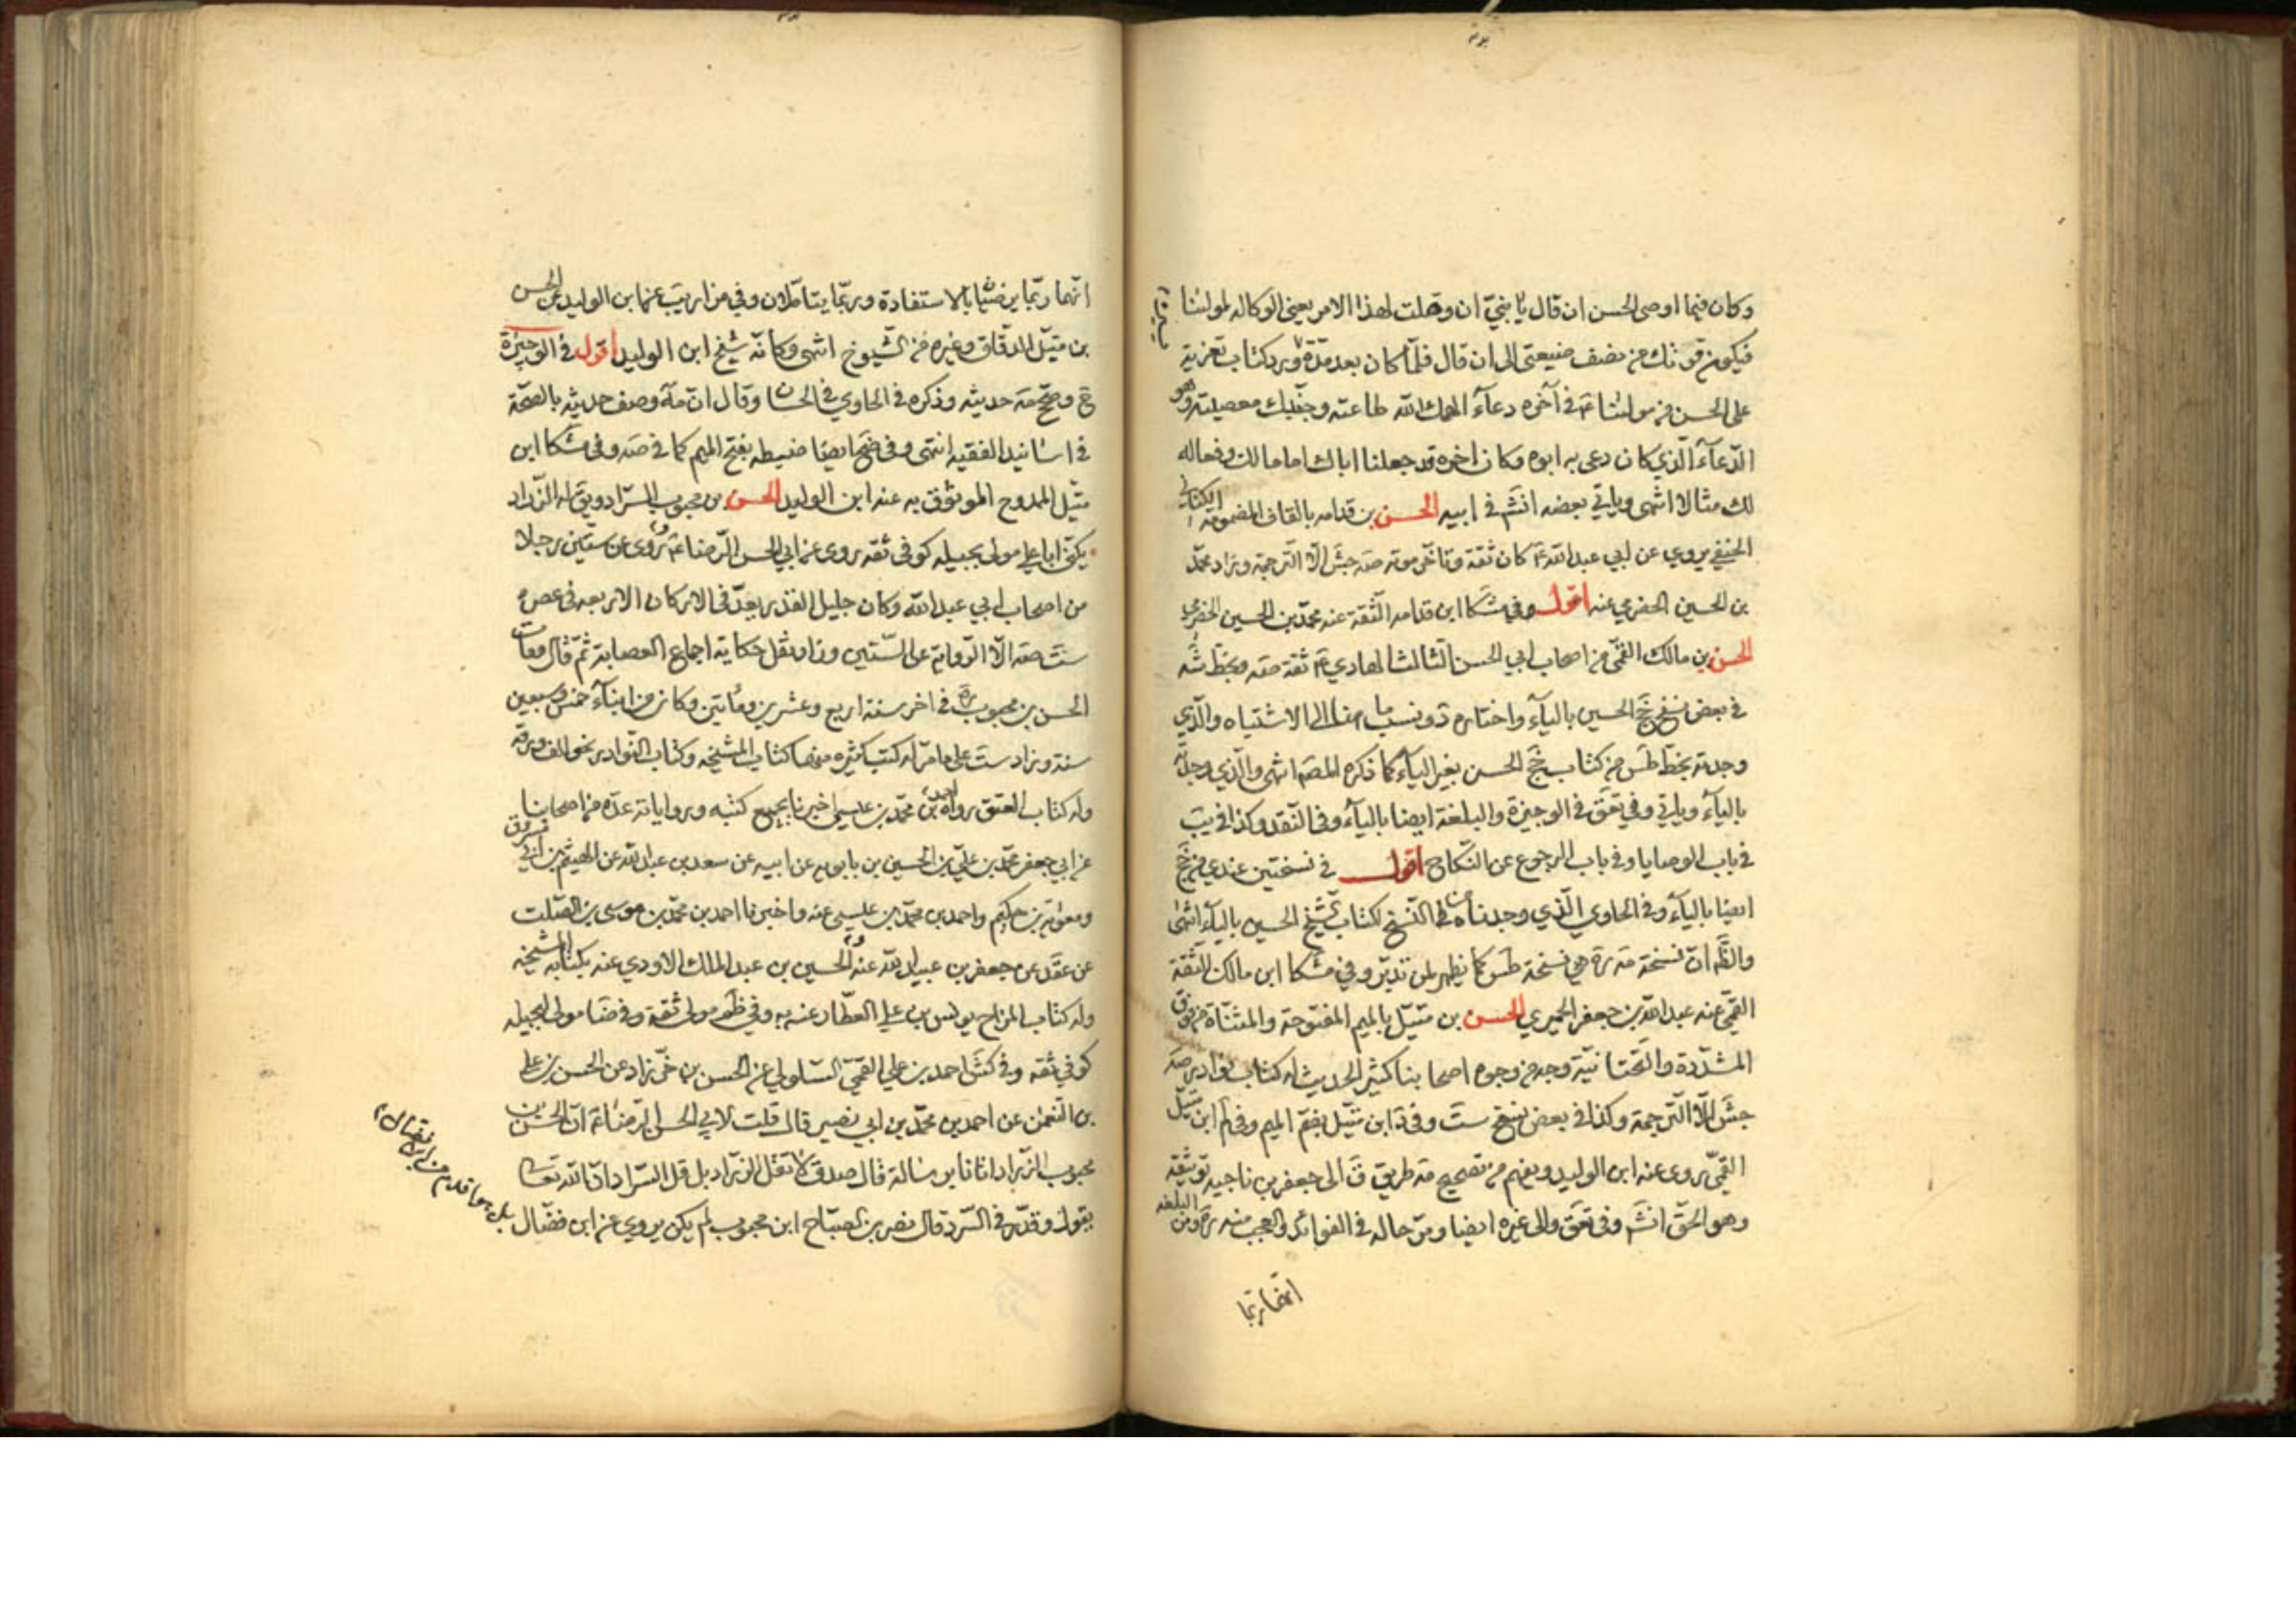 وكان فيما اوصى الحسن ان قال يا بنيّ ان وصلت لهذا الامر يعني الوكاله لمولٰنا
فيكون قوتك من نصف ضيعتي الى ان قال فلمّا كان بعد مدّة ورد كتاب تعزية
على الحسن من مولٰنا عٓ في آخره دعآء الهمك اللّه طاعته وجنّبك معصيته وهو
الدّعآء الّذي كان دعى به ابوه وكان اخره قد جعلنا اباك اماما لك وفعاله
لك مثالا انتهى وياتي بعضه انشٓ في ابيه الحسن بن قدامه بالقاف المضمومه الكناني
الحنفي يروي عن ابي عبد اللّه عٓ كان ثقة وتاخّر موته صه جش الّا الترجمة وزاد محمّد
بن الحسين الحضرمي عنه اقول وفي مشكا ابن قدامه الثّقة عنه محمّد بن الحسين الحضرمي
الحسن بن مالك القمّي من اصحاب ابي الحسن الثالث الهادي عٓ ثقة صه وبخطّ شه
في بعض نسخ جخ الحسين باليآء واختاره د ونسب ما هنا الى الاشتباه والّذي
وجدته بخطّ طس من كتاب جخ الحسن بغير اليآء كما ذكره المصٓ انتهى والّذي وجدته
باليآء وياتي وفي تعق في الوجيزة والبلغة ايضا باليآء وفي النّقد وكذا في يب
في باب الوصايا وفي باب الرجوع عن النّكاح اقول في نسختين عندي من جخ
ايضا باليآء وفي الحاوي الّذي وجدناه في النّسخ لكتاب الشّيخ الحسين باليآء انتهى
والظّٓ انّ نسخة مه ره هي نسخة طس كما يظهر لمن تدبّر وفي مشكا ابن مالك الثقة
القمّي عنه عبد اللّه بن جعفر الحميري الحسن بن متيّل بالميم المفتوحة والمثنّاة من فوق
المشدّدة والتّحتانيّة وجه من وجوه اصحابنا كثير الحديث له كتاب نوادر صه
جش الّا التّرجمة وكذا في بعض نسخ ست وفي د ابن متّيل بضمّ الميم وفي لم ابن متيّل
القمّي روى عنه ابن الوليد ويفهم من تصحيح مه طريق ق الى جعفر بن ناجيه توثيقه
وهو الحقّ انشٓ وفي تعق والى غيره ايضا ومرّ حاله في الفوائد والعجب منه ره ومن البلغه
انّهما ربّما
انّهما ربّما يرضيا بالاستفادة وربّما يتاملان وفي مزار يب عن ابن الوليد عن الحسن
بن متيّل الدقّاق وغيره من الشّيوخ انتهى وكانّه شيخ ابن الوليد اقول في الوجيزة
ح وصحّح مه حديثه وذكره في الحاوي في الحسان وقال ان مه وصف حديثه بالصحّة
في اسانيد الفقيه انتهى وفي ضح ايضا ضبطه بفتح الميم كما في صه وفي مشكا ابن
متّيل الممدوح الموثوق به عنه ابن الوليد الحسن بن محبوب السّراد ويق له الزّراد
يكنّى ابا علي مولى بجيله كوفي ثقه روى عن ابي الحسن الرّضا عٓ وروى عن ستّين رجلا
من اصحاب ابي عبد اللّه وكان جليل القدر يعدّ في الاركان الاربعه في عصره
ست صه الّا الرّواية عن السّتين وزاد نقل حكاية اجماع العصابة ثمّ قال ومات
الحسن بن محبوب ره في اخر سنة اربع وعشرين ومأتين وكان من ابنآء خمس وسبعين
سنة وزاد ست على ما مرّ له كتب كثيره منها كتاب المشيخه وكتاب النّوادر نحو الف ورقه
وله كتاب العتق رواه احمد بن محمّد بن عيسى اخبرنا بجميع كتبه ورواياته عدّه من اصحابنا
عن ابي جعفر محمّد بن علي بن الحسين بن بابويه عن ابيه عن سعد بن عبد اللّه عن الهيثم بن ابي مسروق
ومعوٰية بن حكيم واحمد بن محمّد بن عيسى عنه واخبرنا احمد بن محمّد بن موسى بن الصّلت
عن عقده عن جعفر بن عبيد اللّه عنه والحسين بن عبد الملك الاودي عنه بكتابه المشيخه
وله كتاب المزاح يونس بن علي العطّار عنه به وفي ظم مولى ثقة وفي ضا مولى لبجيله
كوفي ثقه وفي كش احمد بن علي القمّي السّلولي عن الحسن بن خرّزاد عن الحسن بن علي
بن النّعمٰن عن احمد بن محمّد بن ابي نصير قال قلت لابي الحسن الرّضا عٓ انّ الحسن بن
محبوب الزّراد اتانا برسالة قال صدق لا تقل الزّراد بل قل السّراد انّ اللّه تعٰا
يقول وقدّر في السّرد قال نصر بن الصّبّاح ابن محبوب لم يكن يروي عن ابن فضّال
بل هو اقدم من ابن فضّال